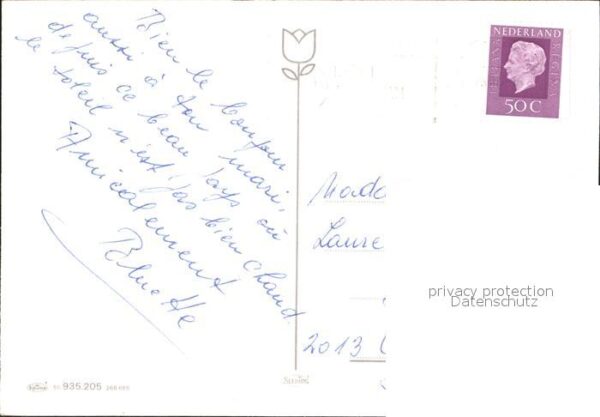 Bien le bonjour
aussi à ton mari,
depuis ce beau pays où
le soleil n'est pas bien chaud.
Amicalement
NEDERLAND
JULIANA REGINA
50 C
Mada
Laure
2013
privacy protection
Datenschutz
935.205